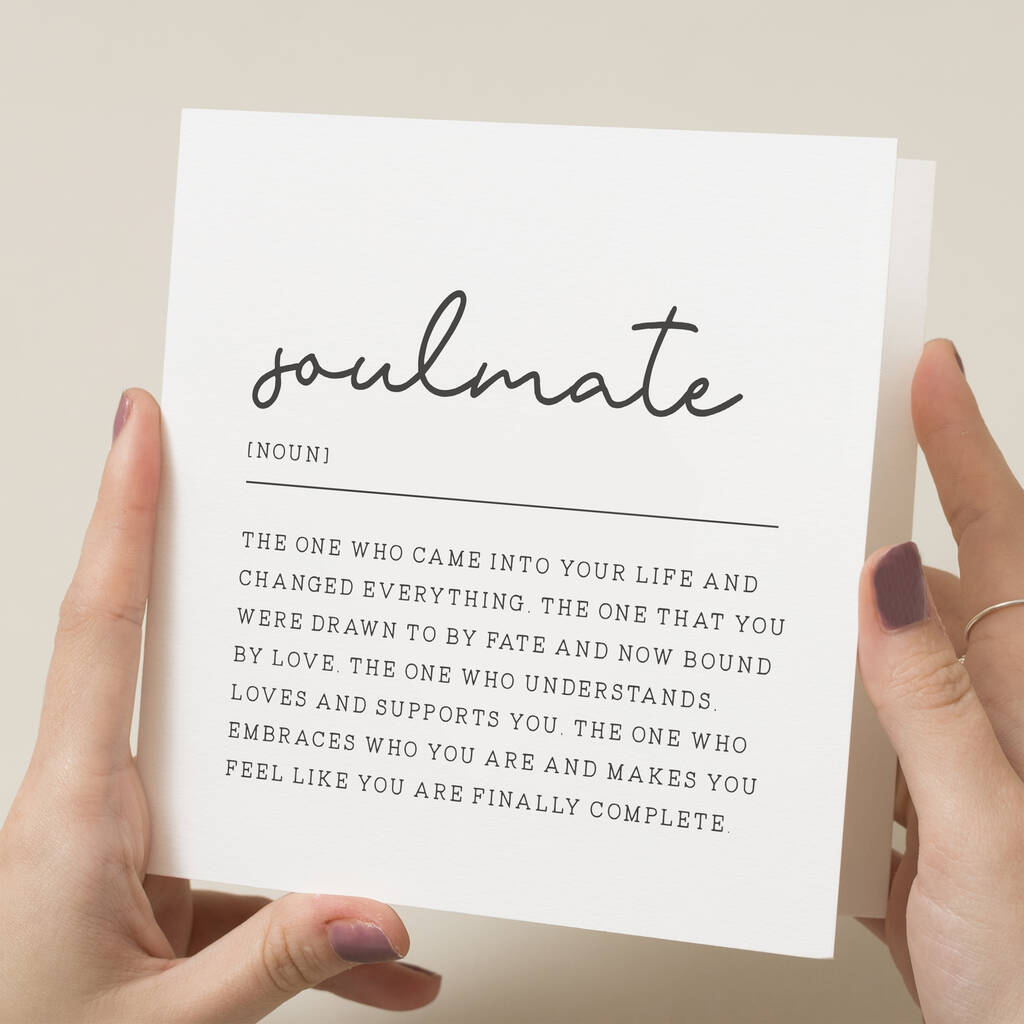 soulmate
[NOUN]
THE ONE WHO CAME INTO YOUR LIFE AND
CHANGED EVERYTHING. THE ONE THAT YOU
WERE DRAWN TO BY FATE AND NOW BOUND
BY LOVE. THE ONE WHO UNDERSTANDS.
LOVES AND SUPPORTS YOU. THE ONE WHO
EMBRACES WHO YOU ARE AND MAKES YOU
FEEL LIKE YOU ARE FINALLY COMPLETE.